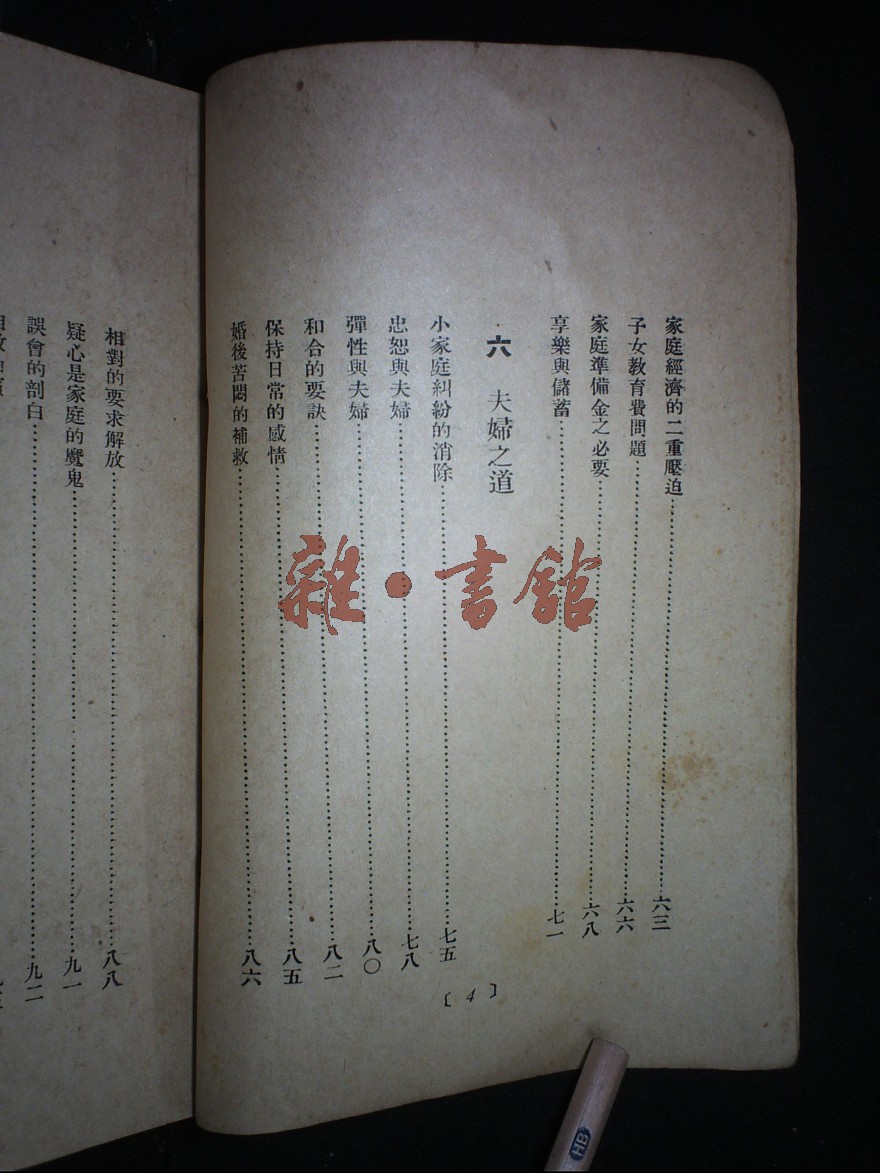 家庭經濟的二重壓迫……六三
子女教育費問題……六六
家庭準備金之必要……六八
享樂與儲蓄……七一
六 夫婦之道
小家庭糾紛的消除……七五
忠恕與夫婦……七八
彈性與夫婦……八〇
和合的要訣……八二
保持日常的感情……八五
婚後苦悶的補救……八六
〔4〕
相對的要求解放……八八
疑心是家庭的魔鬼……九一
誤會的剖白……九二
雜·書館
HB